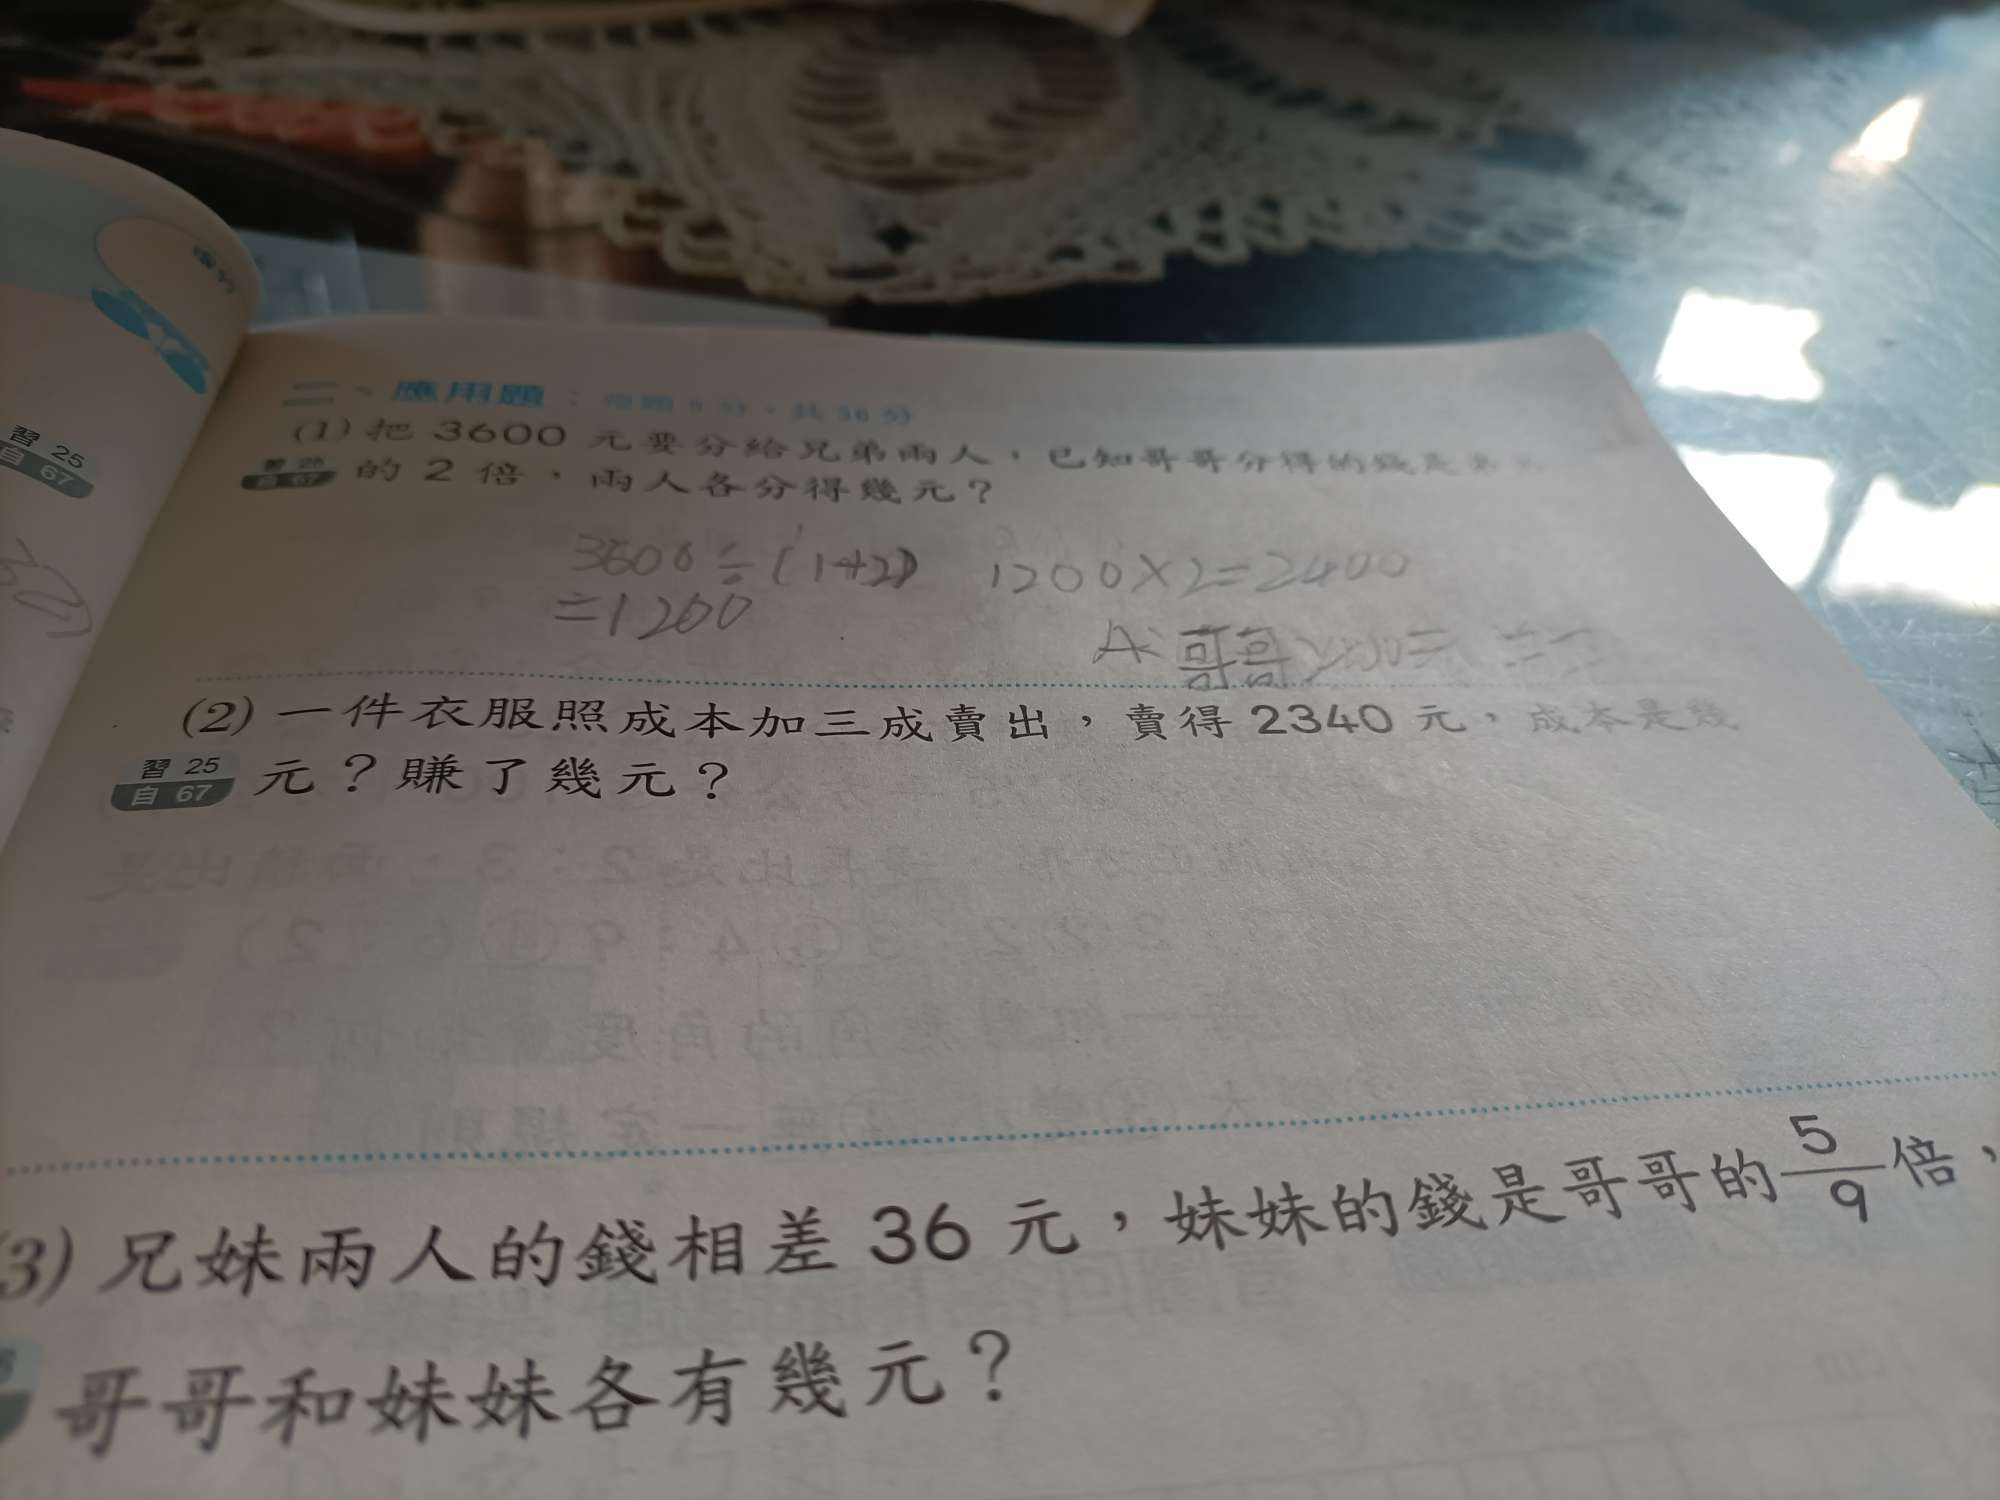 二、應用題：每題9分，共36分
(1) 把 3600 元要分給兄弟兩人，已知哥哥分得的錢是弟弟
的 2 倍，兩人各分得幾元？
3600÷(1+2) 1200×2=2400
=1200
A: 哥哥
(2) 一件衣服照成本加三成賣出，賣得 2340 元，成本是幾
習 25
自 67
元？賺了幾元？
(3) 兄妹兩人的錢相差 36 元，妹妹的錢是哥哥的 5/9 倍，
哥哥和妹妹各有幾元？
習 25
自 67